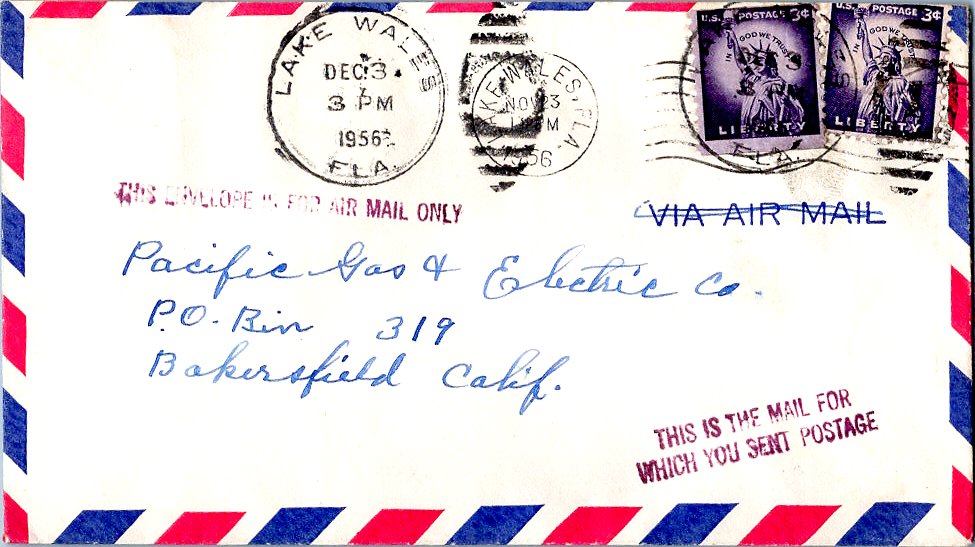 LAKE WALES
DEC 3
3 PM
1956
FLA.
LAKE WALES, FLA.
NOV 23
PM
1956
U.S. POSTAGE 3¢
IN GOD WE TRUST
LIBERTY
U.S. POSTAGE 3¢
IN GOD WE TRUST
LIBERTY
FLA.
THIS ENVELOPE IS FOR AIR MAIL ONLY
VIA AIR MAIL
Pacific Gas & Electric Co.
P.O. Bin 319
Bakersfield Calif.
THIS IS THE MAIL FOR
WHICH YOU SENT POSTAGE